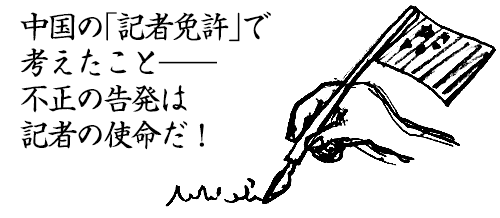 中国の「記者免許」で
考えたこと──
不正の告発は
記者の使命だ！